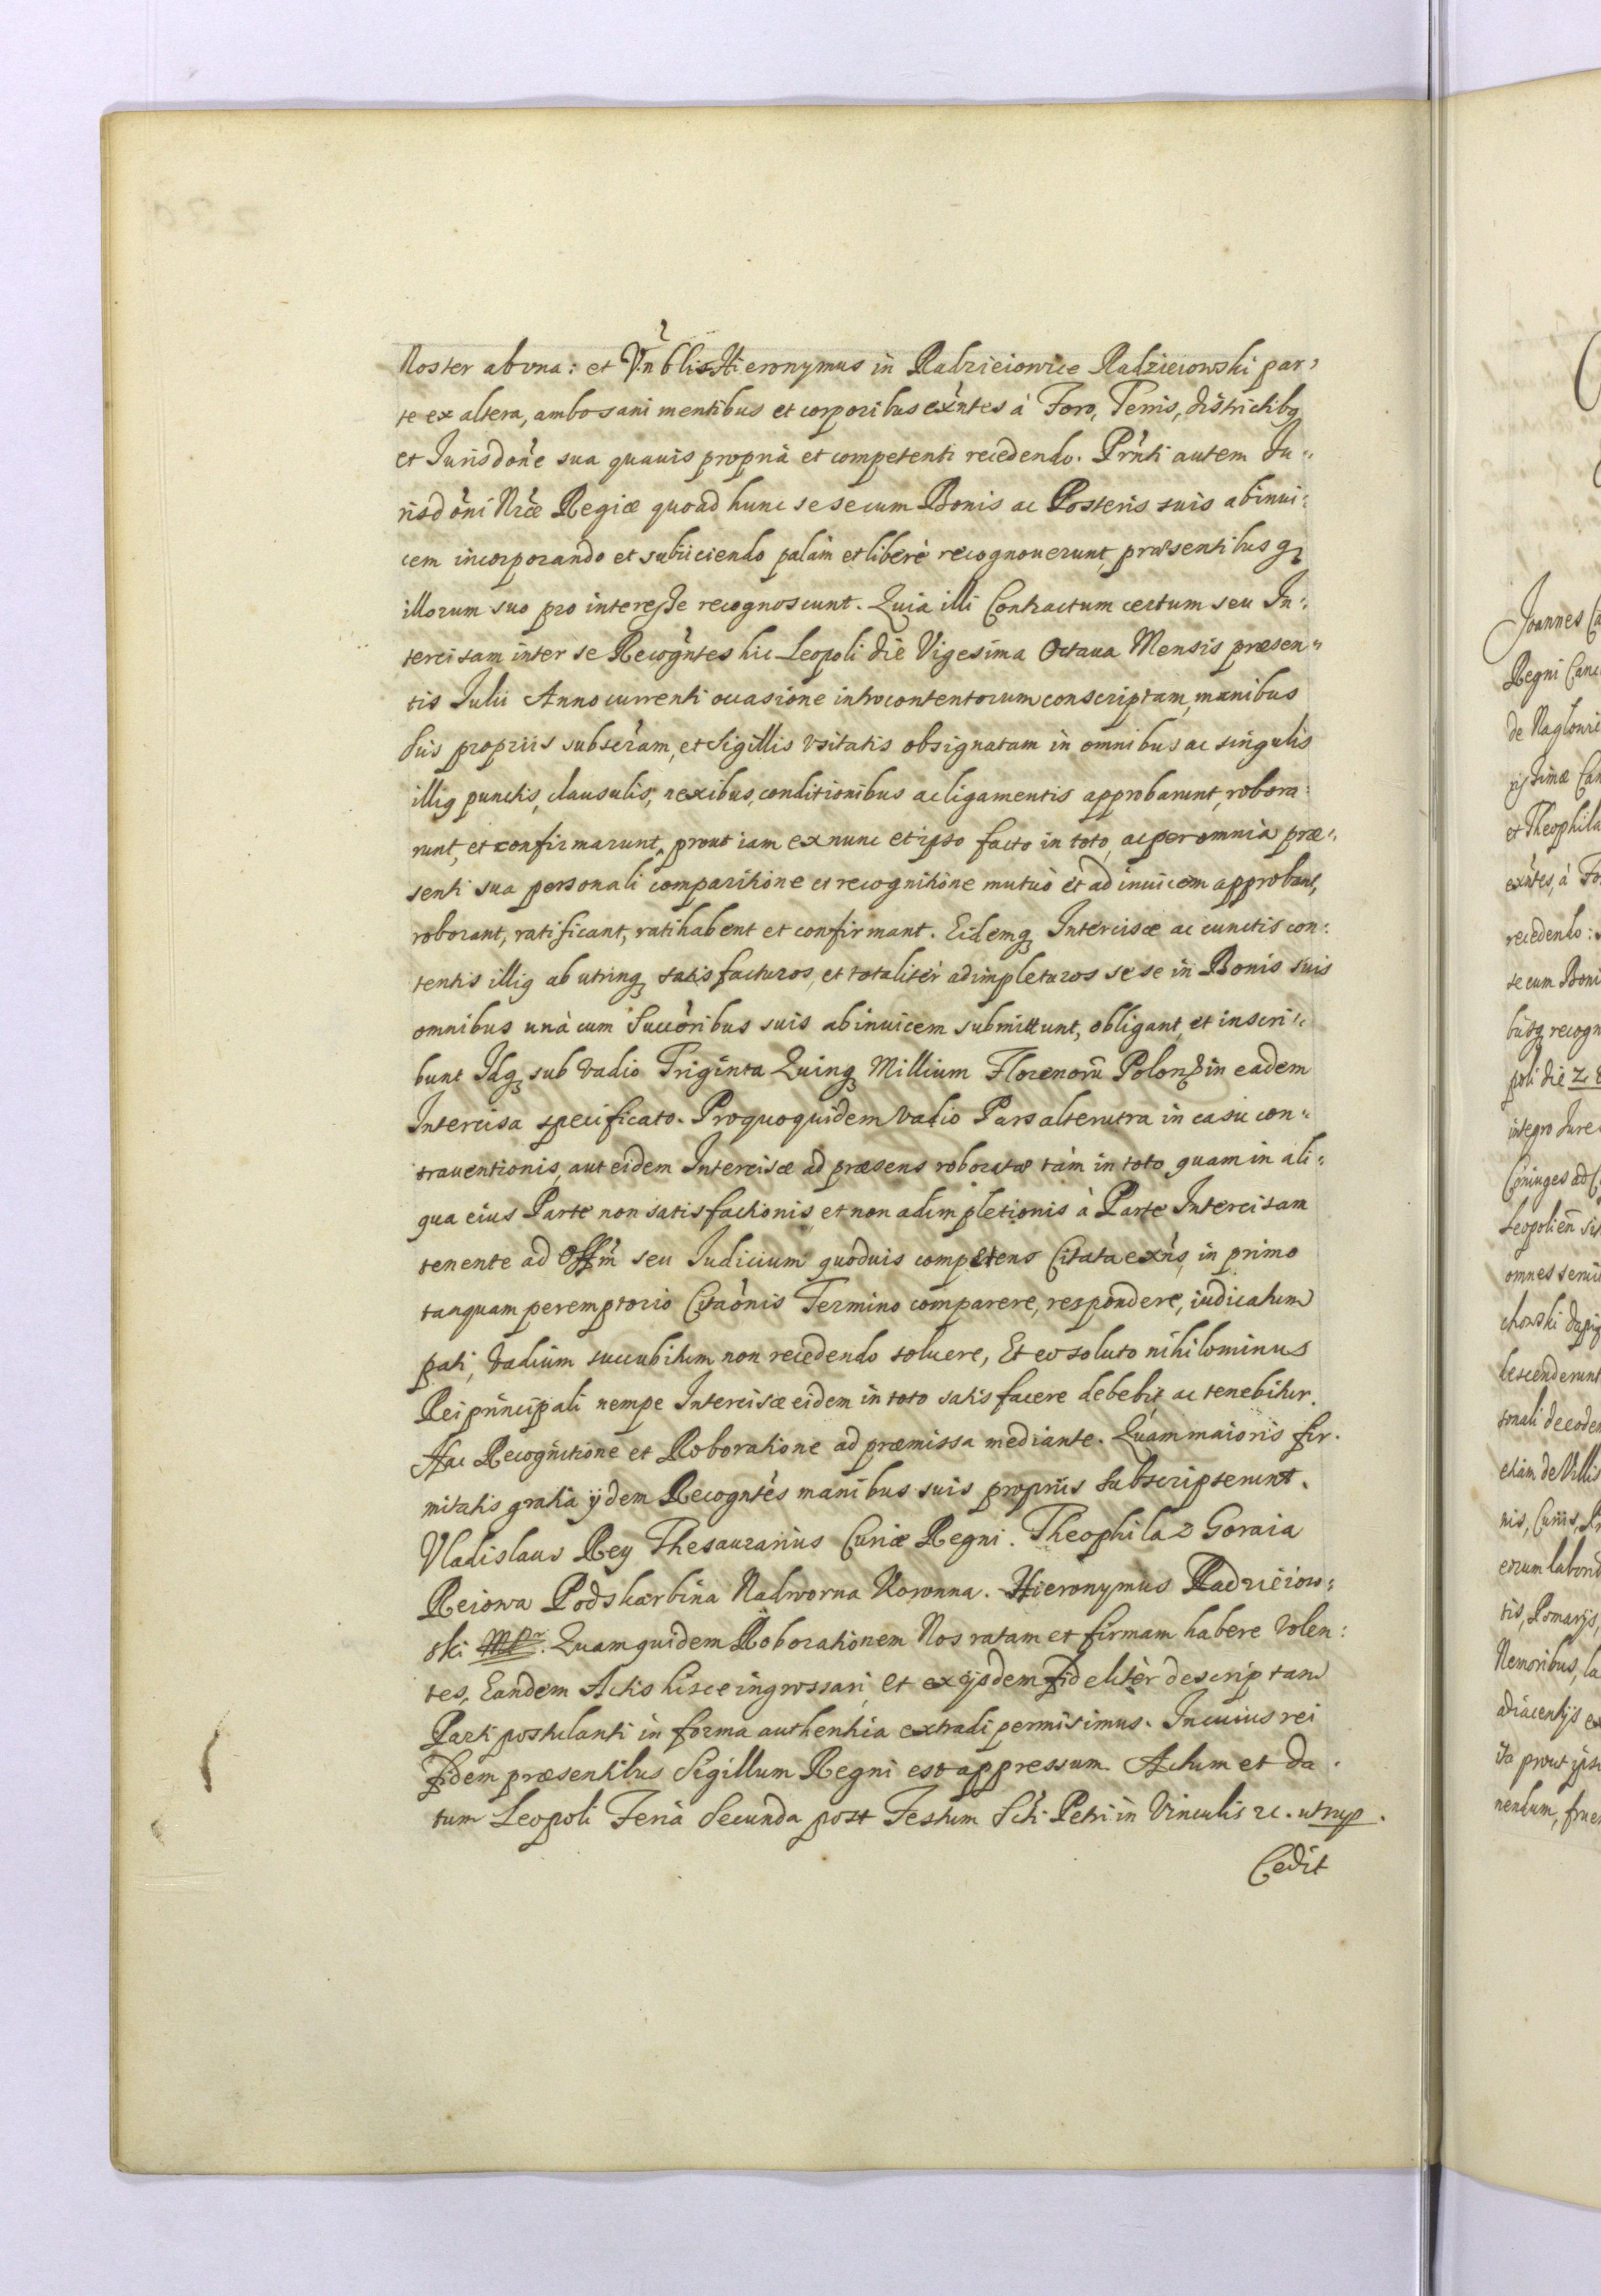 Noster ab vna: et Vnblis Hieronymus in Radzieiowice Radzieiowski par,
te ex altera, ambo sani mentibus et corporibus exntes à Foro, Terris, districtibq
et Iurisdone sua quauis propria et competenti recedendo. Prnti autem Iu„
risdoni Nrae Regiae quo ad hunc se se cum Bonis ac Posteris suis ab inui:
cem incorporando et subiiciendo palàm et liberè recognouerunt, praesentibusq
illorum suo pro interesse recognoscunt. Quia illi Contractum certum seu In:
tercisam inter se Recogntes hic Leopoli die Vigesima Octaua Mensis praesen„
tis Iulii Anno currenti occasione introcontentorum conscriptam, manibus
suis propriis subscram, et Sigillis vsitatis obsignatam in omnibus ac singulis
illiq punctis, clausulis, nexibus, conditionibus ac ligamentis approbarunt, robora:
runt, et confirmarunt, prout iam ex nunc et ipso facto in toto, ac per omnia prae:
senti sua personali comparitione et recognitione mutuò et ad inuicem approbant,
roborant, ratificant, ratihabent et confirmant. Eidemq Intercisae ac cunctis con:
tentis illiq ab utrinq satisfacturos, et totalitèr adimpleturos se se in Bonis suis
omnibus unà cum Succoribus suis ab inuicem submittunt, obligant, et inscri:
bunt Idq sub vadio Triginta Quinq Millium Florenorū Polon in eadem
Intercisa specificato. Pro quo quidem vadio Pars alterutra in casu con„
trauentionis, aut eidem Intercisae ad praesens roboratae tàm in toto quam in ali:
qua eius Parte non satisfactionis et non adimpletionis à Parte Intercisam
tenente ad Offm seu Iudicium quoduis competens Citata exns, in primo
tanquam peremptorio Citaonis Termino comparere, respondere, iudicatum
pati, vadium succubitum non recedendo soluere, Et eo soluto nihilominus
Rei principali nempe Intercisae eidem in toto satisfacere debebit, ac tenebitur.
Hac Recognitione et Roboratione ad praemissa mediante. Quam maioris fir.
mitatis gratia ijdem Recogntes manibus suis propriis subscripserunt.
Vladislaus Rey Thesaurarius Curiae Regni. Theophila z Goraia
Reiowa Podskarbina Nadworna Koronna. Hieronymus Radzieiow:
ski mpr. Quam quidem Roborationem Nos ratam et firmam habere volen:
tes, Eandem Actis hisce ingrossari, et ex ijsdem fidelitèr descriptam
Parti postulanti in forma authentica extradi permisimus. In cuius rei
fidem praesentibus Sigillum Regni est appressum. Actum et da.
tum Leopoli Feria Secunda post Festum Scti Petri in Vinculis rc. ut sup.
Cedit